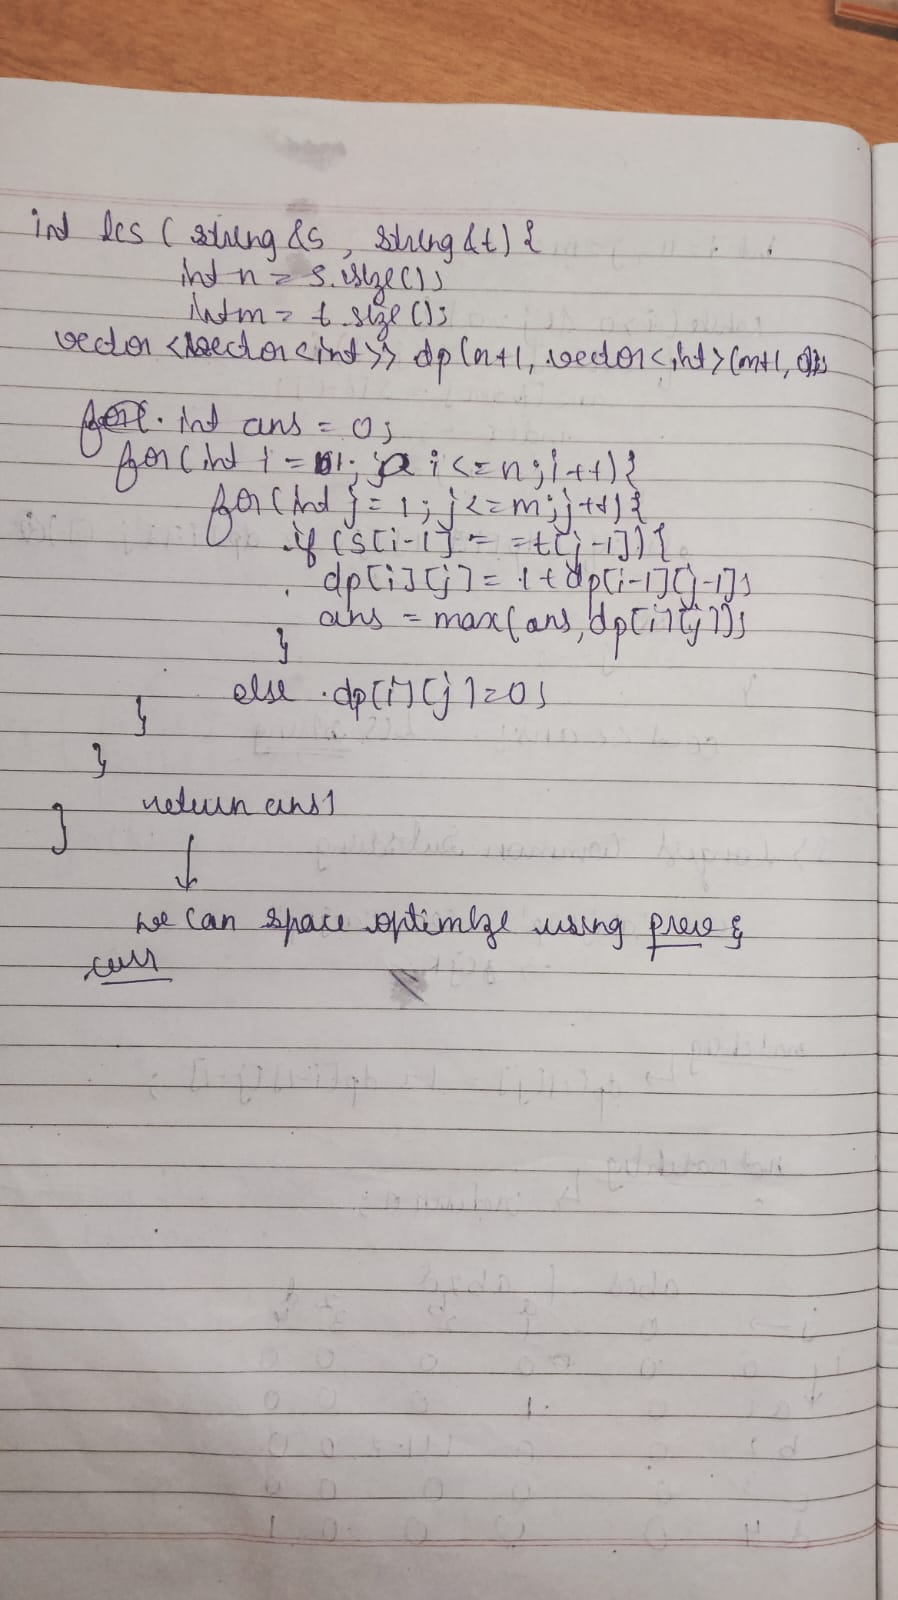 int lcs ( string &s , string &t) {
int n = s.size();
int m = t.size();
vector <vector<int>> dp(n+1, vector<int>(m+1, 0));
int ans = 0;
for(int i = 1; i<=n;i++){
for(int j = 1; j<=m;j++){
if (s[i-1] = =t[j-1]){
dp[i][j] = 1+dp[i-1][j-1];
ans = max(ans,dp[i][j]);
}
else dp[i][j]=0;
}
}
return ans;
}
we can space optimize using prev &
curr